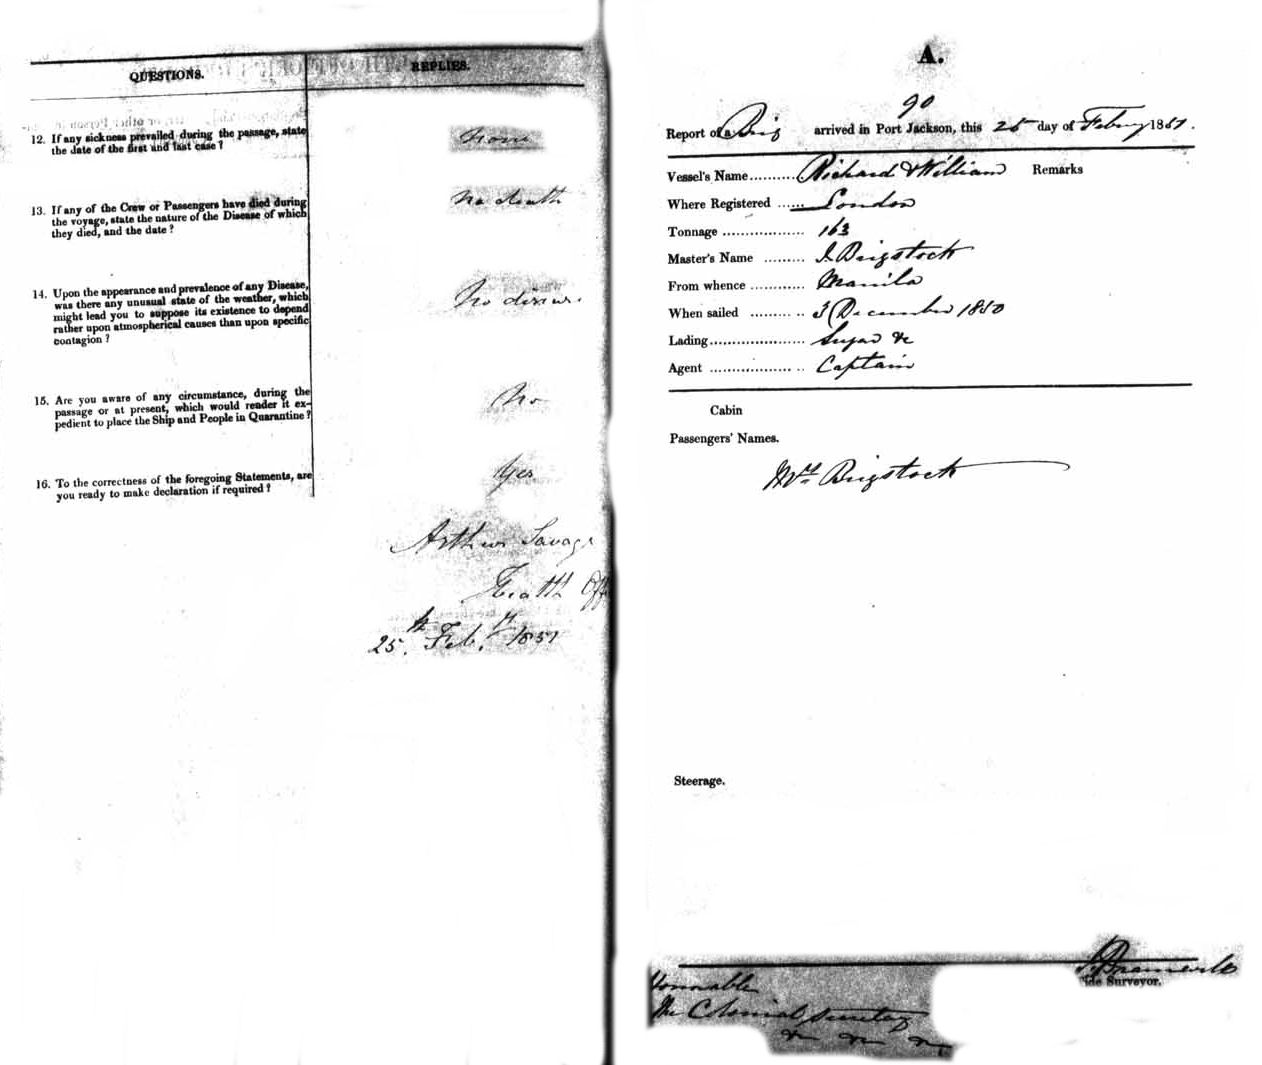 QUESTIONS.
REPLIES.
12. If any sickness prevailed during the passage, state
the date of the first and last case ?
None
13. If any of the Crew or Passengers have died during
the voyage, state the nature of the Disease of which
they died, and the date ?
No death
14. Upon the appearance and prevalence of any Disease,
was there any unusual state of the weather, which
might lead you to suppose its existence to depend
rather upon atmospherical causes than upon specific
contagion ?
No disease.
15. Are you aware of any circumstance, during the
passage or at present, which would render it ex-
pedient to place the Ship and People in Quarantine ?
No
16. To the correctness of the foregoing Statements, are
you ready to make declaration if required ?
Yes
Arthur Savage
Health Off
25th Feb.ry 1851
A.
90
Report of a Brig arrived in Port Jackson, this 25 day of Febry 1851.
Vessel's Name.......... Richard & William Remarks
Where Registered ...... London
Tonnage .................. 163
Master's Name ......... J. Brigstock
From whence ............ Manila
When sailed ......... .. 3 December 1850
Lading..................... Sugar &c
Agent .................. .. Captain
Cabin
Passengers' Names.
Mrs Brigstock
Steerage.
Tide Surveyor.
Honorable
The Colonial Secretary
&c &c &c